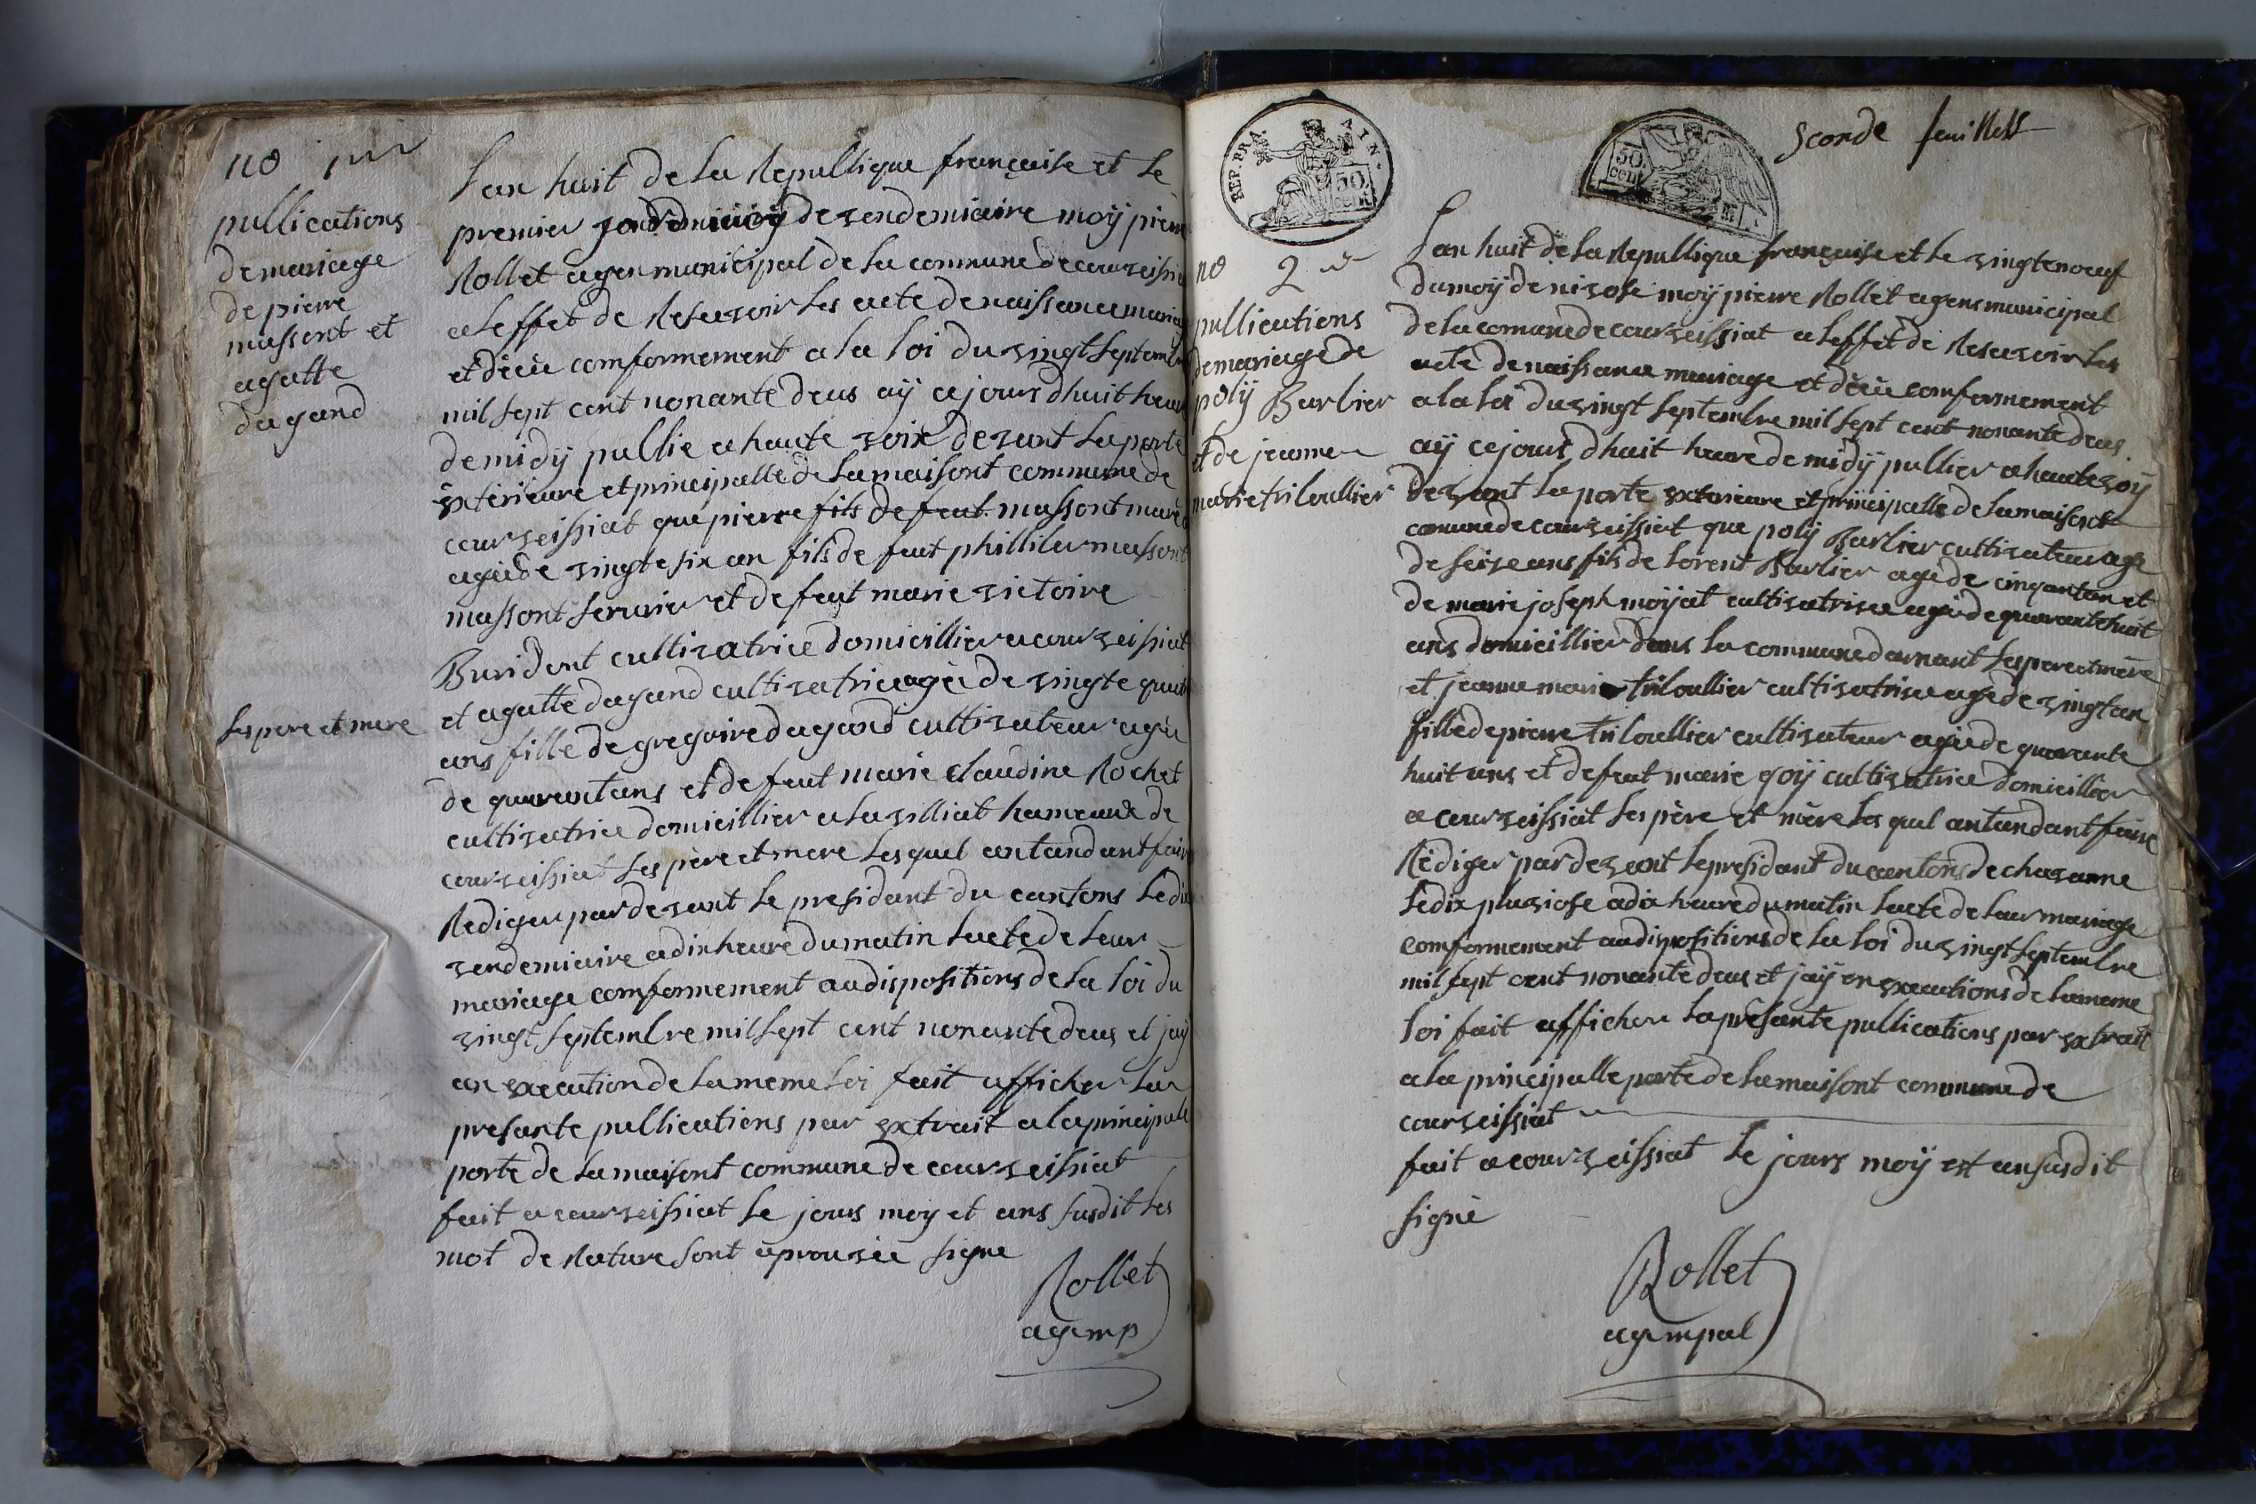 no 1er
pullications
de mariage
de pierre
massont et
agatte
dagand
les pere et mere
Lan huit de la Republlique francaise et le
premier jour de vendemiaire moÿ pierre
Rollet agen municipal de la commune de courveissia
a leffet de Resevoir les acte de naissance mariag
et décéè comformement a la loi du vingt septembre
mil sept cent nonante deus aÿ cejours dhuit heure
de midÿ pullie a haute voix devant la porte
éxterieure et principalle de la maisont commune de
courveissiat que pierre fils de feut massont
agéè de vingte six an fils de feut philliler massont
massont serurier et de feut marie victoire
Buridont cultivatrice domicillier a courveissiat
et agatte dagand cultivatrice agéè de vingte quatre
ans fille de gregoire dagand cultivateur agéè
de quarentans et de feut marie claudine Rochet
cultivatrice domicillier a la villiat hameaux de
courveissiat les père et mere les quel antandant faire
Rediger par devant le presidant du cantons le dix
vendemiaire a dix heure du matin lacte de leur
mariage comformement au dispositions de la loi du
vingt septemlre mil sept cent nonante deus et jaÿ
en execution de la meme loi fait afficher la
presante pullications par extrait a la principale
porte de la maisont commune de courveissiat
fait a courveissiat le jours moy et ans susdit les
mot de Rature sont éprouvéè signe
Rollet
agemp
sconde feuillett
REP. FRA. AIN.
50 cent
50 cent
no 2
pullications
de mariage de
polÿ Barlier
et de jeanne
marie triloullier
Lan huit de la Republlique française et le vingtenoeuf
du moÿ de nivose moÿ pierre Rollet agens municipal
de la comune de courveissiat a leffet de Resevoir les
acte de naissance mariage et décéè comformement
a la loi du vingt septemlre mil sept cent nonante deus
aÿ cejours dhuit heure de midÿ pullier a haute voÿ
devant la porte exterieure et principalle de la maisont
comune de courveissiat que polÿ Barlier cultivateur age
de seise ans fils de lorent Barlier agéde cinqantan et
de marie joseph moÿat cultivatrise agéè de quarante huit
ans domicillier dans la commune darnant les pere et mère
et jeanne marie triloullier cultivatrise agéde vingt an
fille de pierre triloullier cultivateur agéè de quarante
huit ans et de feut marie goÿ cultivatrice domicillier
a courveissiat les père et mère les qual antandant faire
Rédiger par devant le presidant du cantons de chavanne
le dix pluviose a dix heure du matin lacte de leur mariage
comformement au dispositions de la loi du vingt septemlre
mil sept cent nonante deus et jaÿ en executions de la meme
loi fait afficher la présante pullications par extrait
a la principalle porte de la maisont commune de
courveissiat
fait a courveissiat le jours moÿ est an susdit
signé
Rollet
agempal